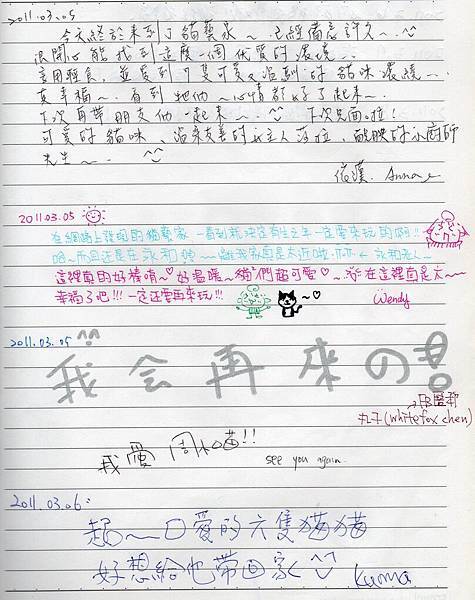 2011.03.05
今天終於來到了貓藝家~ 已經備忘許久~
很開心能找到這麼一個優質的環境…
享用輕食，並愛到7隻可愛 的貓咪環繞…
真幸福~ 看到牠們~心情都好了起來~
下次再帶朋友們一起來~ 下次見面啦！
可愛的貓咪、 友善的女主人 、靦腆的小廚師
先生~ ^^
Anna
2011.03.05
在網路上發現的貓藝家一看到就決定有生之年一定要來玩的啊!!
哈~而且還是在永和
這裡真的好棒唷~♡好溫暖~貓們超可愛♡~ 在這裡真是太~~
幸福了吧!!! 一定還要再來玩!!! Wendy
2011.03.05
我会再來の!
丸子(whitefox chen)
我愛周小喵!!
see you again.
2011.03.06:
超~口愛的六隻貓貓
好想給他帶回家 ^^ kuma